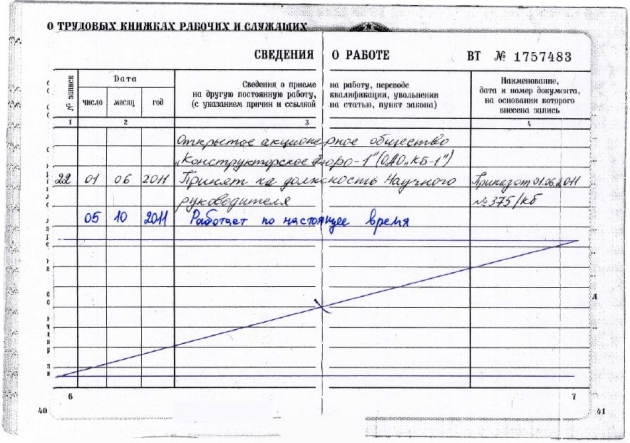 О ТРУДОВЫХ КНИЖКАХ РАБОЧИХ И СЛУЖАЩИХ
СВЕДЕНИЯ О РАБОТЕ ВТ № 1757483
№ записи
Дата
число месяц год
Сведения о приеме на работу, переводе
на другую постоянную работу, квалификации, увольнении
(с указанием причин и ссылкой на статью, пункт закона)
Наименование,
дата и номер документа,
на основании которого
внесена запись
1 2 3 4
Открытое акционерное общество
"Конструкторское бюро-1" (ОАО "КБ-1")
22 01 06 2011 Принят на должность Научного Приказ от 01.06.2011
руководителя № 375/КБ
05 10 2011 Работает по настоящее время
6 7
40 41